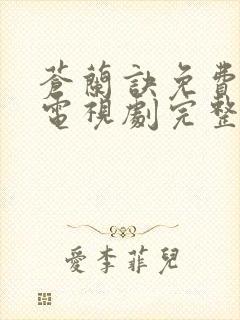 蒼蘭訣免費
電視劇完整
愛李菲兒